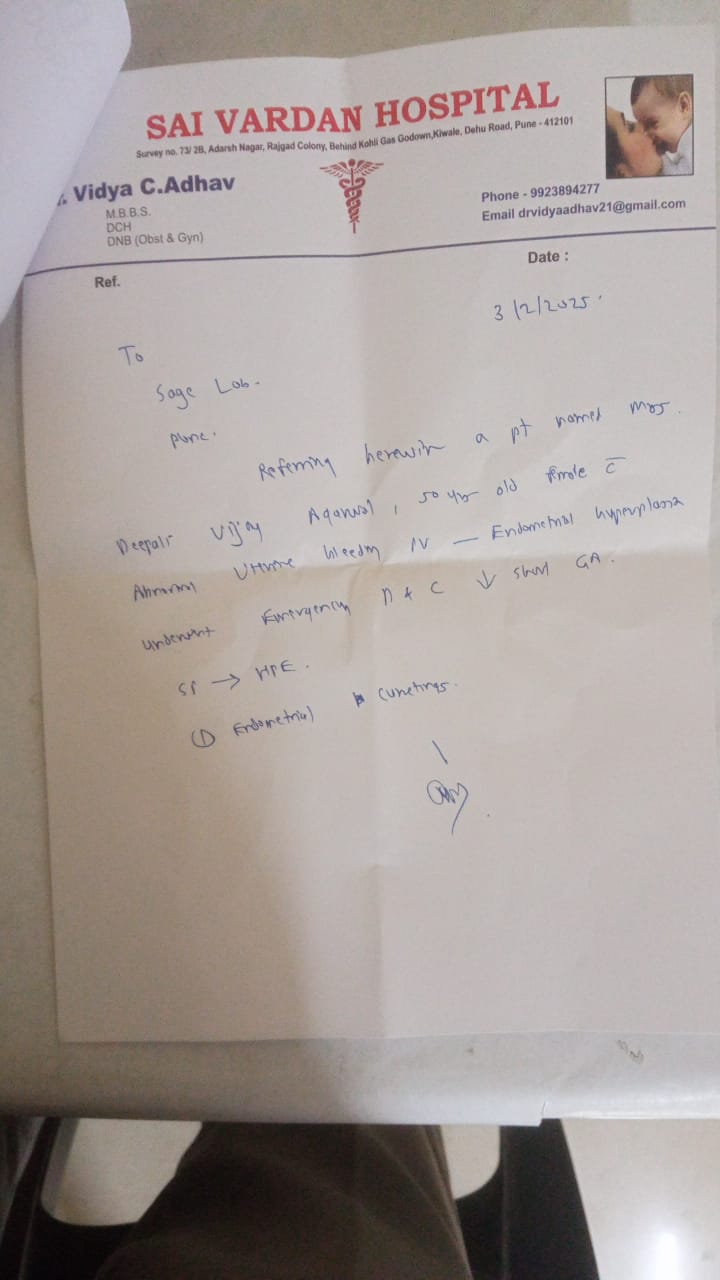 SAI VARDAN HOSPITAL
Survey no. 73/ 2B, Adarsh Nagar, Rajgad Colony, Behind Kohli Gas Godown,Kiwale, Dehu Road, Pune - 412101
. Vidya C.Adhav
M.B.B.S.
DCH
DNB (Obst & Gyn)
Phone - 9923894277
Email drvidyaadhav21@gmail.com
Ref.
Date :
3/2/2025
To
Sage Lab.
pune.
Referring herewith a pt named Mrs.
Deepali Vijay Agarwal, 50 yr old female c̄
Abnormal Uterine bleeding — Endometrial hyperplasia
underwent Emergency D & C ↓ short GA.
→ HPE.
① Endometrial curettings.